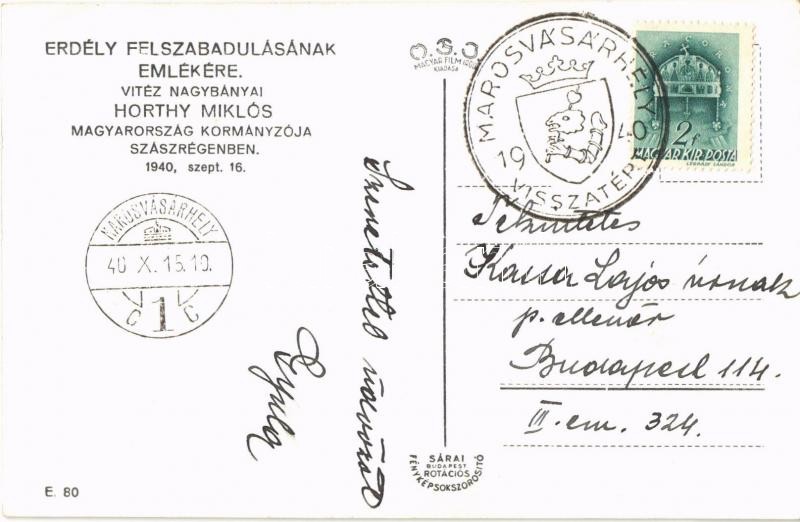 ERDÉLY FELSZABADULÁSÁNAK
EMLÉKÉRE.
VITÉZ NAGYBÁNYAI
HORTHY MIKLÓS
MAGYARORSZÁG KORMÁNYZÓJA
SZÁSZRÉGENBEN.
1940, szept. 16.
MAROSVÁSÁRHELY
40 X. 15.19.
C 1 C
E. 80
Szeretettel üdvözöl
Gyula
MAGYAR FILM IRODA
KIADÁSA
SÁRAI
BUDAPEST
ROTÁCIÓS
FÉNYKÉPSOKSZOROSÍTÓ
MAROSVÁSÁRHELY
19 40
VISSZATÉRT
2f
MAGY. KIR. POSTA
LÉGRÁDY SÁNDOR
Tekintetes
Kassa Lajos úrnak
p. ellenőr
Budapest 114.
III. em. 324.